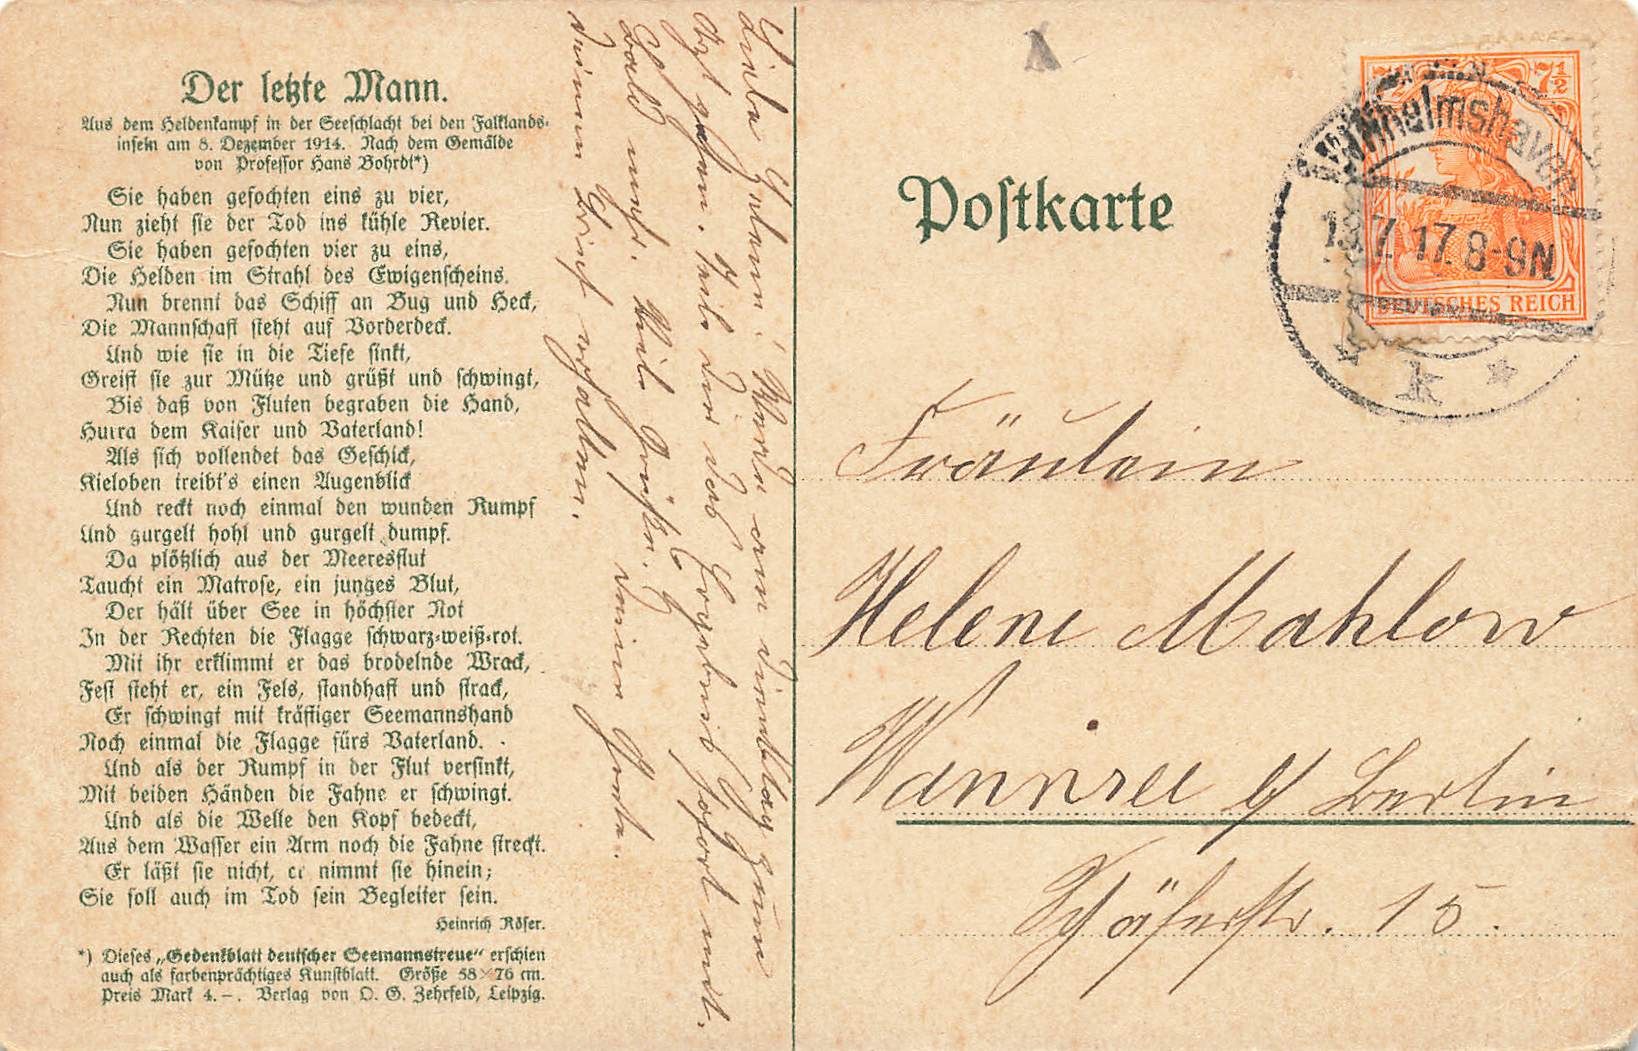 Der letzte Mann.
Aus dem Heldenkampf in der Seeschlacht bei den Falklands-
inseln am 8. Dezember 1914. Nach dem Gemälde
von Professor Hans Bohrdt*)
Sie haben gefochten eins zu vier,
Nun zieht sie der Tod ins kühle Revier.
Sie haben gefochten vier zu eins,
Die Helden im Strahl des Ewigenscheins.
Nun brennt das Schiff an Bug und Heck,
Die Mannschaft steht auf Vorderdeck.
Und wie sie in die Tiefe sinkt,
Greift sie zur Mütze und grüßt und schwingt,
Bis daß von Fluten begraben die Hand,
Hurra dem Kaiser und Vaterland!
Als sich vollendet das Geschick,
Kieloben treibt's einen Augenblick
Und reckt noch einmal den wunden Rumpf
Und gurgelt hohl und gurgelt dumpf.
Da plötzlich aus der Meeresflut
Taucht ein Matrose, ein junges Blut,
Der hält über See in höchster Not
In der Rechten die Flagge schwarz-weiß-rot.
Mit ihr erklimmt er das brodelnde Wrack,
Fest steht er, ein Fels, standhaft und strack,
Er schwingt mit kräftiger Seemannshand
Noch einmal die Flagge fürs Vaterland.
Und als der Rumpf in der Flut versinkt,
Mit beiden Händen die Fahne er schwingt.
Und als die Welle den Kopf bedeckt,
Aus dem Wasser ein Arm noch die Fahne streckt.
Er läßt sie nicht, er nimmt sie hinein;
Sie soll auch im Tod sein Begleiter sein.
Heinrich Röser.
*) Dieses „Gedenkblatt deutscher Seemannstreue“ erschien
auch als farbenprächtiges Kunstblatt. Größe 58×76 cm.
Preis Mark 4.–. Verlag von O. G. Zehrfeld, Leipzig.
Liebe Helene! Werde am Dienstag zum
Arzt gehen. Teile dir das Ergebnis sofort mit.
Bald mehr. Viele Grüße. Deine
deinen Brief erhalten.
Postkarte
7½
Wilhelmshaven
13.7.17.8-9N
DEUTSCHES REICH
* k *
Fräulein
Helene Mahlow
Wannsee b/ Berlin
Schäferstr. 15.